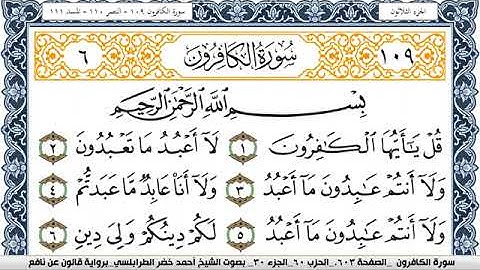 الجزء الثلاثون
سورة الكافرون ١٠٩ - النصر ١١٠ - المسد ١١١
١٠٩ سُورَةُ الكَافِرُونَ ٦
بِسْمِ اللَّهِ الرَّحْمَٰنِ الرَّحِيمِ
قُلْ يَٰأَيُّهَا الْكَٰفِرُونَ ١ لَا أَعْبُدُ مَا تَعْبُدُونَ ٢
وَلَا أَنتُمْ عَٰبِدُونَ مَا أَعْبُدُ ٣ وَلَا أَنَا عَابِدٌ مَّا عَبَدتُّمْ ٤
وَلَا أَنتُمْ عَٰبِدُونَ مَا أَعْبُدُ ٥ لَكُمْ دِينُكُمْ وَلِيَ دِينِ ٦
سورة الكافرون _ الصفحة ٦٠٣_ الحزب ٦٠_ الجزء ٣٠_ بصوت الشيخ أحمد خضر الطرابلسي_ برواية قالون عن نافع